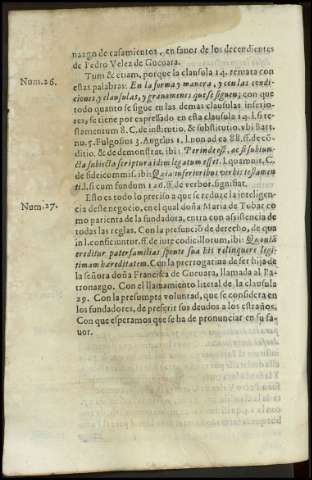 nazgo de casamientos, en fauor de los decendientes
de Pedro Velez de Gueuara.
Num.26. Tum & etiam, porque la clausula 14. remata con
estas palabras: En la forma y manera, y con las condi-
ciones, y clausulas, y grauamenes que se siguen; con que
todo quanto se sigue en las demas clausulas inferio-
res, se tiene por expressado en esta clausula 14. l. si te-
stamentum 8. C. de institutio. & substitutio. vbi Bart.
nu. 5. Fulgosius 3. Angelus 1. l. non ad ea 88. ff. de cō-
ditio. & de demonstrat. ibi: Perinde est, ac si subiun-
cta subiecta scriptura idem legatum esset. l. quamuis, C.
de fideicommis. ibi: Quia inferioribus verbis testamen-
ti. l. si cum fundum 126. ff. de verbor. signifiat.
Num.27. Esto es todo lo preciso a que se reduze la inteligen-
cia deste negocio, en el qual doña Maria de Tobar co-
mo parienta de la fundadora, entra con assistencia de
todas las reglas. Con la presuncion de derecho, de qua
in l. conficiuntor. ff. de iure codicillorum, ibi: Quoniā
creditur paterfamilias sponte sua his relinquere legi-
timam hæreditatem. Con la prerrogatiua de ser hija de
la señora doña Francisca de Gueuara, llamada al Pa-
tronazgo. Con el llamamiento literal de la clausula
29. Con la presumpta voluntad, que se considera en
los fundadores, de preferir sus deudos a los estraños.
Con que esperamos que se ha de pronunciar en su fa-
uor.